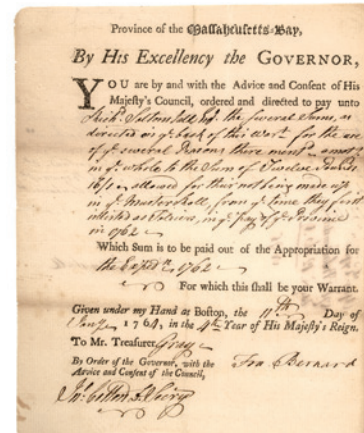 Province of the Massachusetts-Bay,
By His Excellency the GOVERNOR,
YOU are by and with the Advice and Consent of His
Majesty's Council, ordered and directed to pay unto
Richd. Saltonstall Esq. the several Sums, as
directed in ye. back of this Warrt. for the use
of ye. several Persons there mentd. amotg.
in ye. whole to the Sum of Twelve Pounds
16/1 allowed for their not being made up
in ye. Muster Roll, from ye. time they first
inlisted as Patriots, in ye. pay of ye. Province
in 1762
Which Sum is to be paid out of the Appropriation for
the Expedn. 1762
For which this shall be your Warrant.
Given under my Hand at Boston, the 11th Day of
Jany. 1764, in the 4th Year of His Majesty's Reign.
To Mr. Treasurer Gray
By Order of the Governor, with the
Advice and Consent of the Council,
Fra Bernard
Jno. Cotton D. Secry